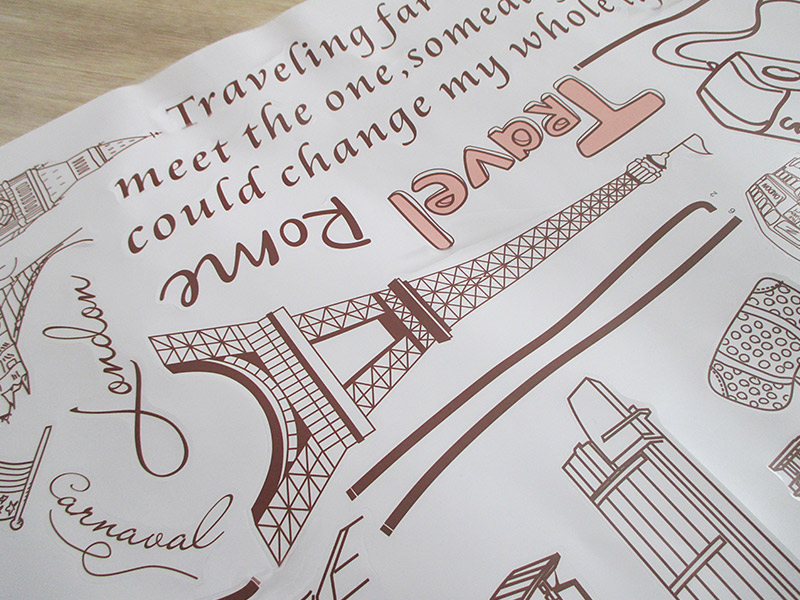 Traveling far
meet the one, someday
could change my whole
Travel
Rome
London
Carnaval
2
6